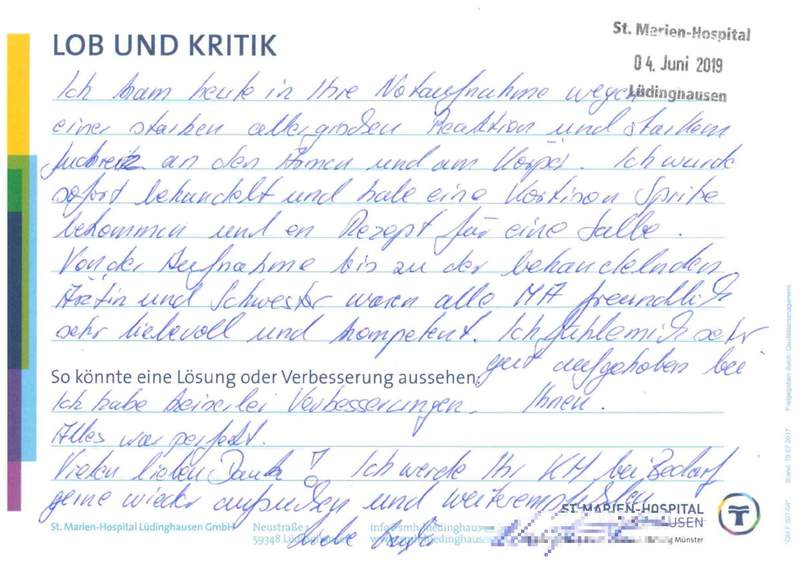 LOB UND KRITIK
St. Marien-Hospital
04. Juni 2019
Lüdinghausen
Ich kam heute in Ihre Notaufnahme wegen
einer starken allergischen Reaktion und starkem
Juckreiz an den Armen und am Körper. Ich wurde
sofort behandelt und habe eine Kortison Spritze
bekommen und en Rezept für eine Salbe.
Von der Aufnahme bis zu der behandelnden
Ärztin und Schwester waren alle MA freundlich
sehr liebevoll und kompetent. Ich fühle mich sehr
gut aufgehoben bei
Ihnen.
So könnte eine Lösung oder Verbesserung aussehen:
Ich habe keinerlei Verbesserungen.
Alles war perfekt.
Vielen lieben Dank! Ich werde Ihr KH bei Bedarf
gerne wieder aufsuchen und weiterempfehlen
ST. MARIEN-HOSPITAL
HAUSEN
St. Marien-Hospital Lüdinghausen GmbH
Neustraße
59348 Lüdingh
info@smh-luedinghaus
Münster
Liebe Grüße
Freigegeben durch: Qualitätsmanagement
Stand: 19.07.2017